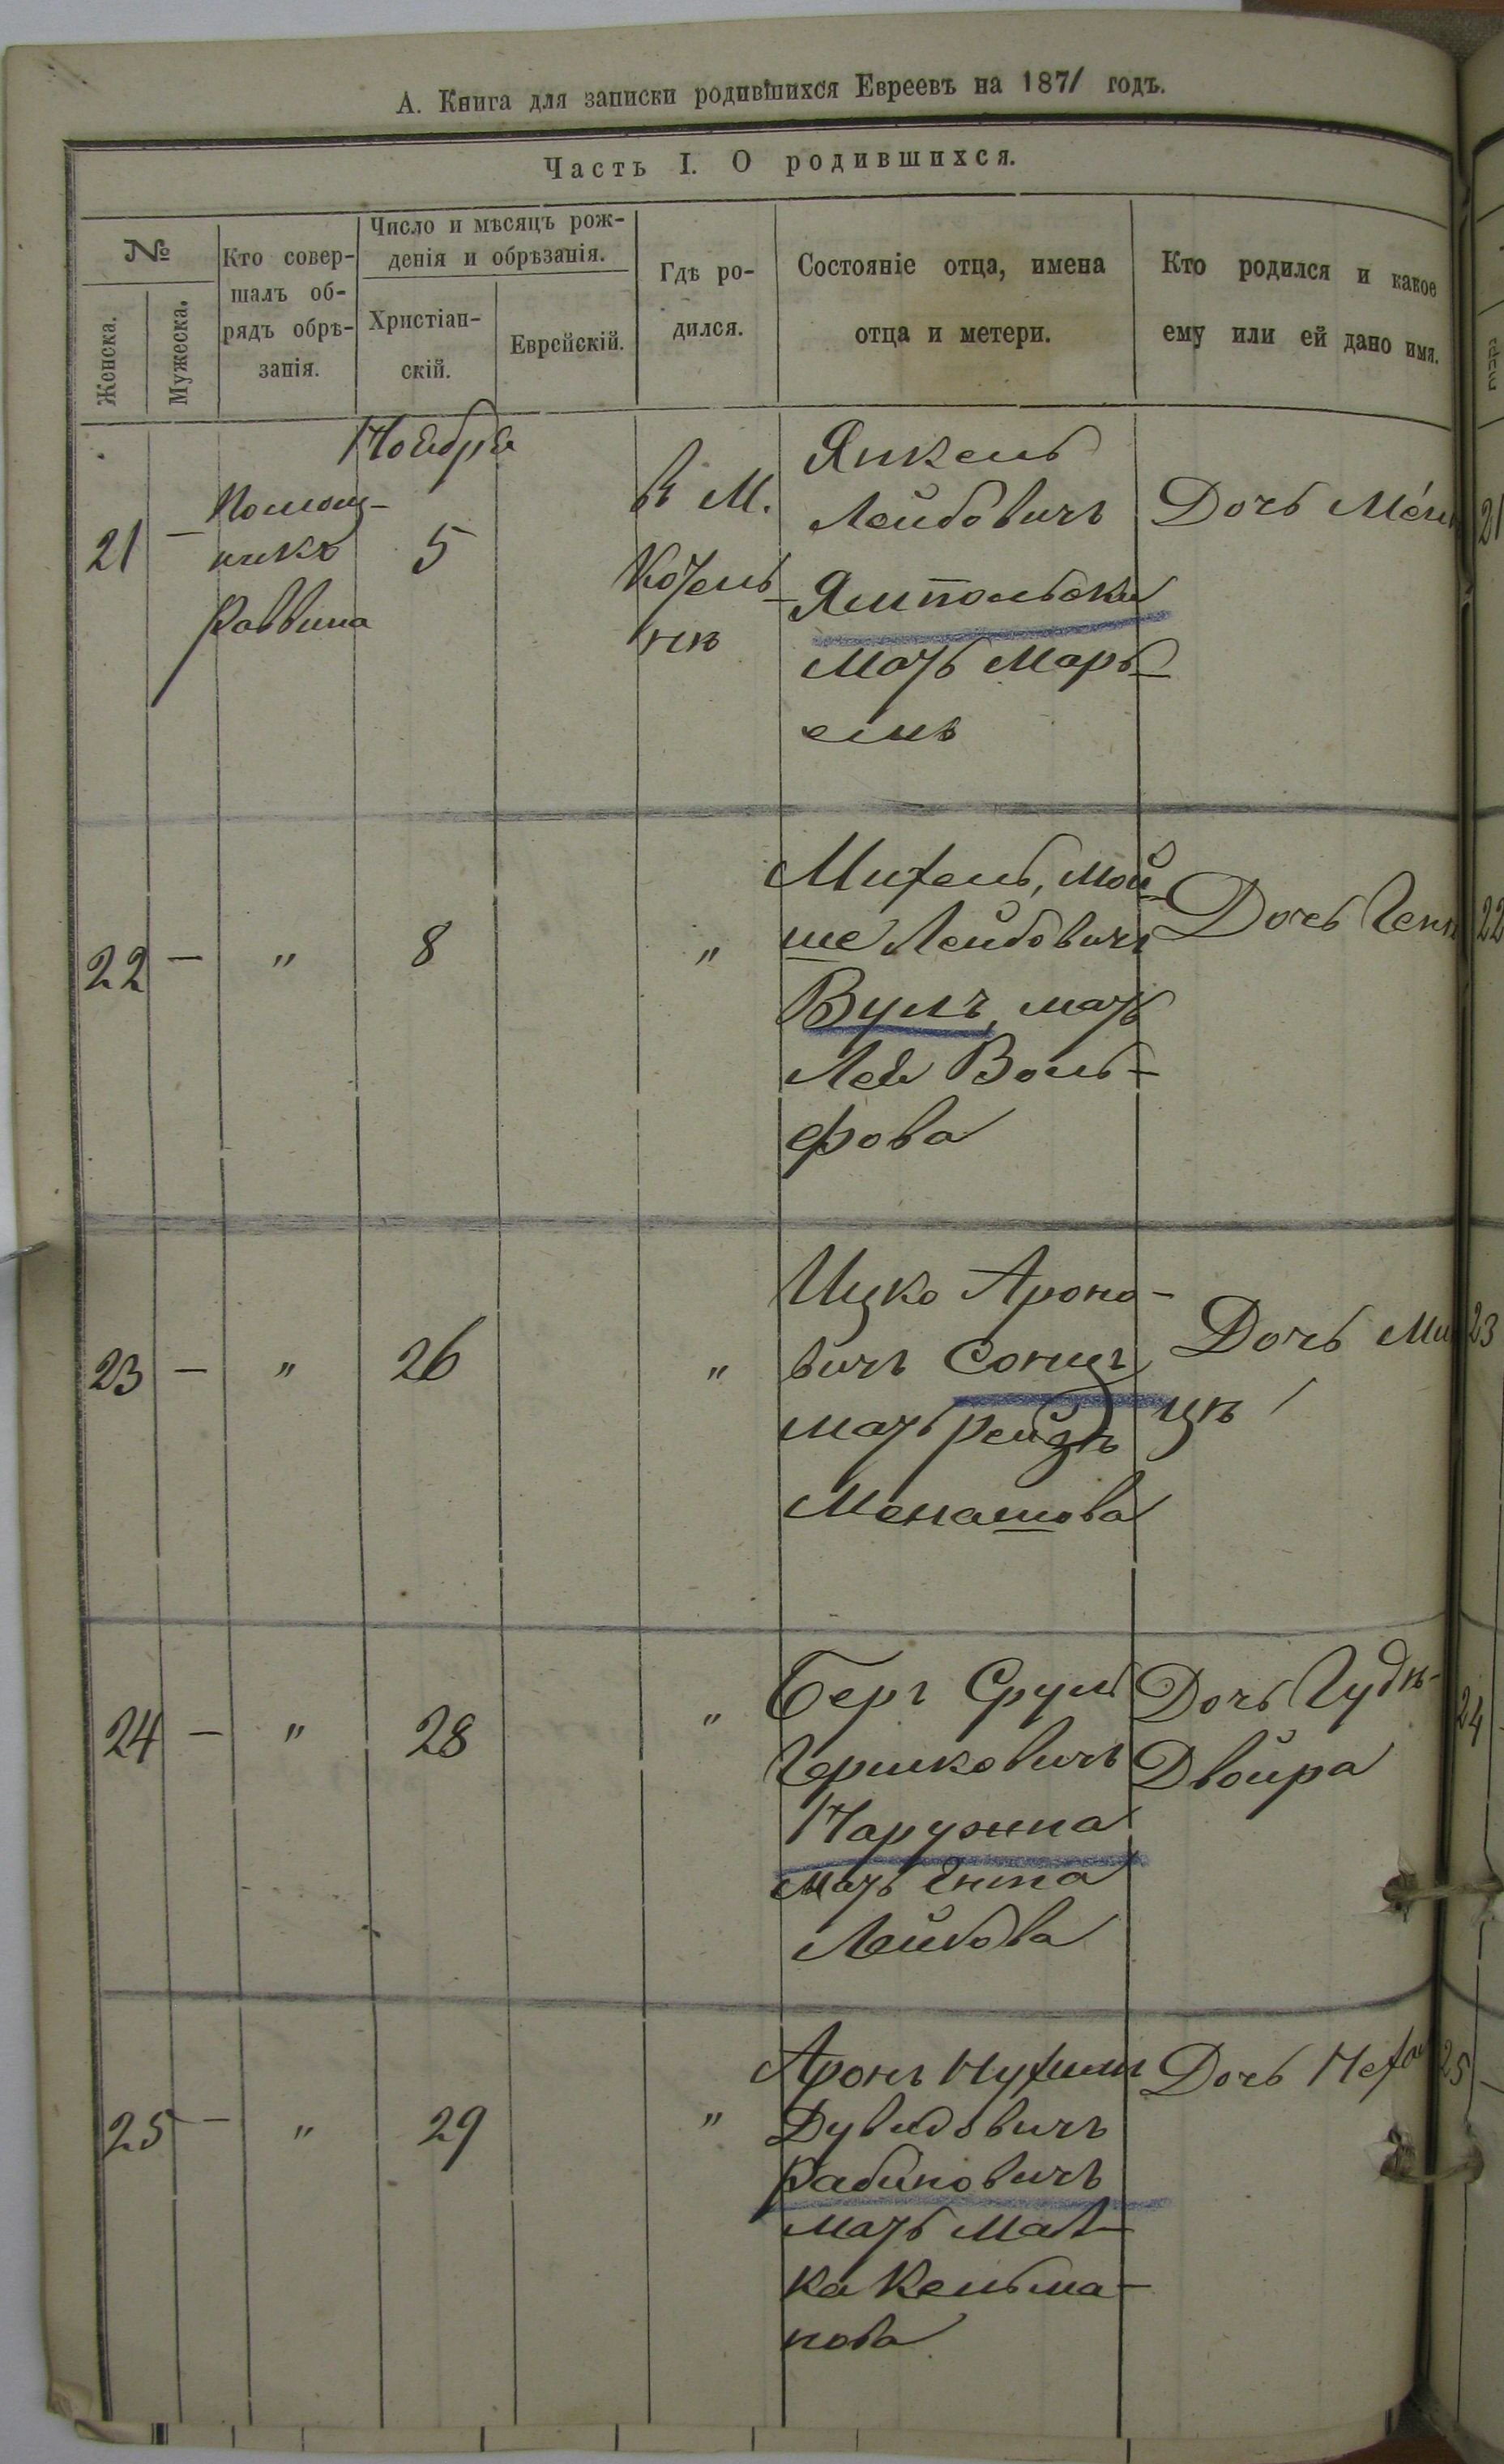 А. Книга для записки родившихся Евреевъ на 1871 годъ.
Часть I. О родившихся.
№
Женска.
Мужеска.
Кто совер-
шалъ об-
рядъ обрѣ-
занія.
Число и мѣсяцъ рож-
денія и обрѣзанія.
Христіан-
скій.
Еврейскій.
Гдѣ ро-
дился.
Состояніе отца, имена
отца и метери.
Кто родился и какое
ему или ей дано имя.
Ноября
21 — Помощ-
никъ
Раввина
5
В М.
Котель-
нѣ
Янкель
Лейбовичъ
Ямпольски
мать Марь-
емъ
Дочь
21
22 — " 8 "
Михель, Мой-
ше Лейбовичъ
Вулъ, мать
Лея Воль-
фова
Дочь
22
23 — " 26 "
Ицко Ароно-
вичъ Сонцъ
мать Рейзѣ
Менашова
Дочь Ми
цѣ
23
24 — " 28 "
Беръ Сруль
Гершковичъ
Наружна
мать Ента
Лейбова
Дочь Гудѣ-
Двойра
24
25 — " 29 "
Аронъ Нухимъ
Дувидовичъ
Рабиновичъ
мать Мал-
ка Кельма-
нова
Дочь Неха
25